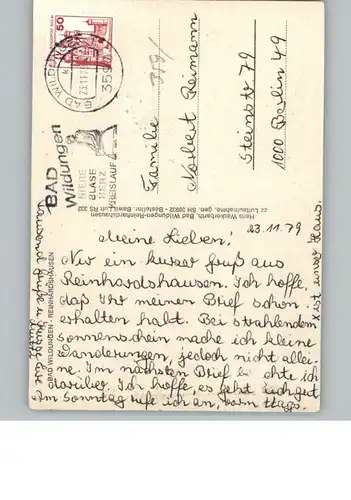 50
BAD WILDUNGEN 1
23.11.79
359
BAD
Wildungen
NIERE
BLASE
HERZ
KREISLAUF
359/
Familie
Norbert Reimann
Steinstr 79
1000 Berlin 49
Hans Wackerbarth, Bad Wildungen-Reinhardshausen
zz Luftaufnahme, gen. SH 36932 - Bestellnr. BawiLun RH 332
BAD WILDUNGEN - REINHARDSHAUSEN
23.11.79
Meine Lieben!
Nur ein kurzer Gruß aus
Reinhardshausen. Ich hoffe,
daß Ihr meinen Brief schon
erhalten habt. Bei strahlendem
Sonnenschein mache ich kleine
Wanderungen, jedoch nicht allei-
ne. Im nächsten Brief b chte ich
darüber. Ich hoffe, es geht Euch gut
Am Sonntag rufe ich an, vorm ttags.
Tausend Grüße u. Küsse Eure
x ist unser Haus.